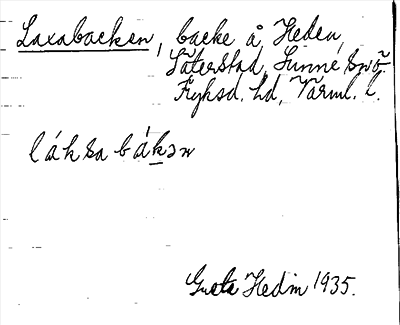 Laxabacken, backe å Heden,
Säterstad, Sunne snö
Fryksd. hd, Värml. l.
láksa bákən
Greta Hedin 1935.